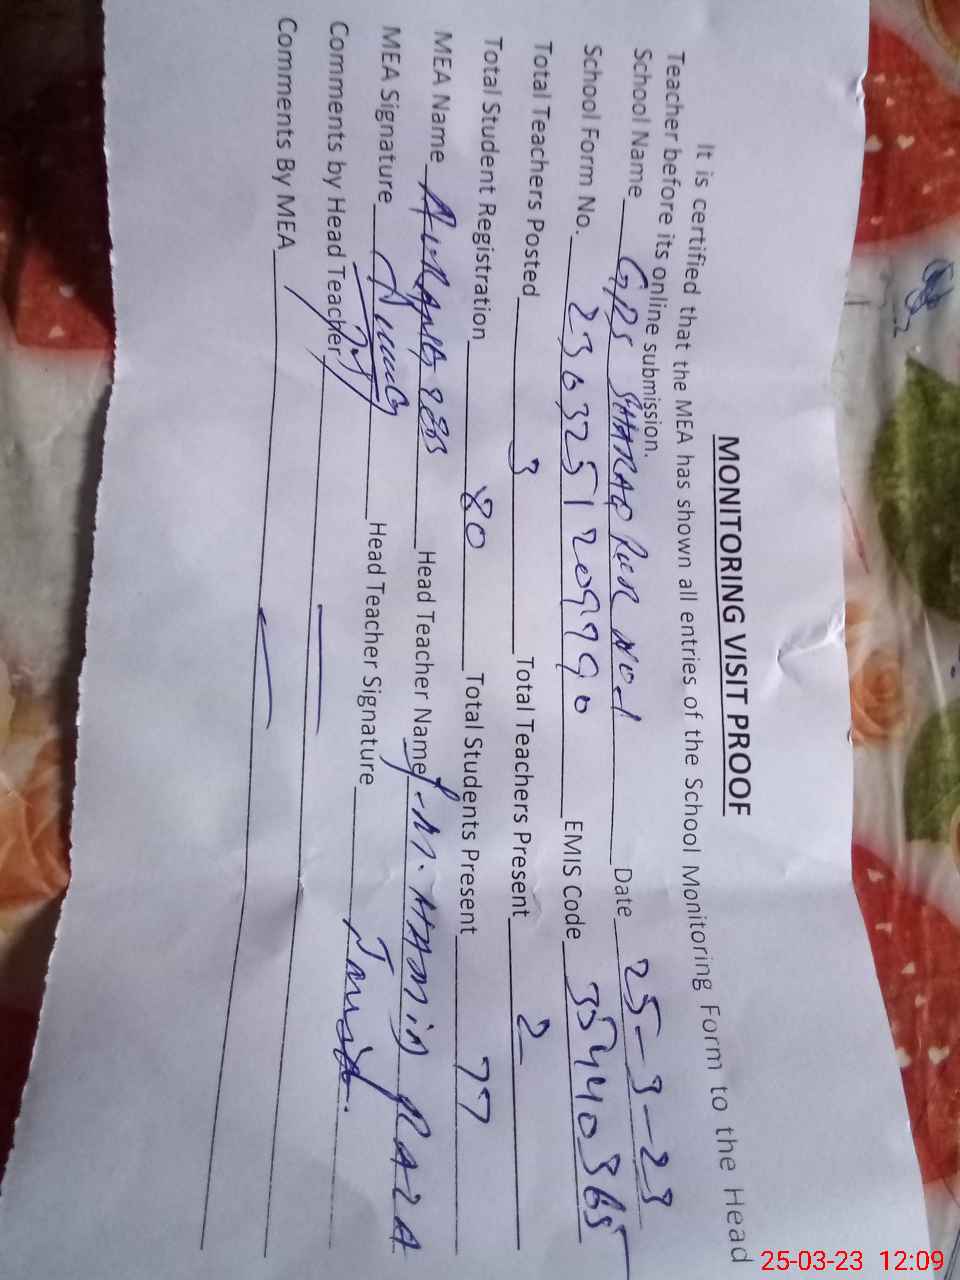 MONITORING VISIT PROOF
It is certified that the MEA has shown all entries of the School Monitoring Form to the Head
Teacher before its online submission.
School Name GPS SHARAP PUR NO 1 Date 25-3-23
School Form No. 230325120990 EMIS Code 35440365
Total Teachers Posted 3 Total Teachers Present 2
Total Student Registration 80 Total Students Present 77
MEA Name Head Teacher Name M. HAMID RAZA
MEA Signature Head Teacher Signature
Comments by Head Teacher
Comments By MEA
25-03-23 12:09